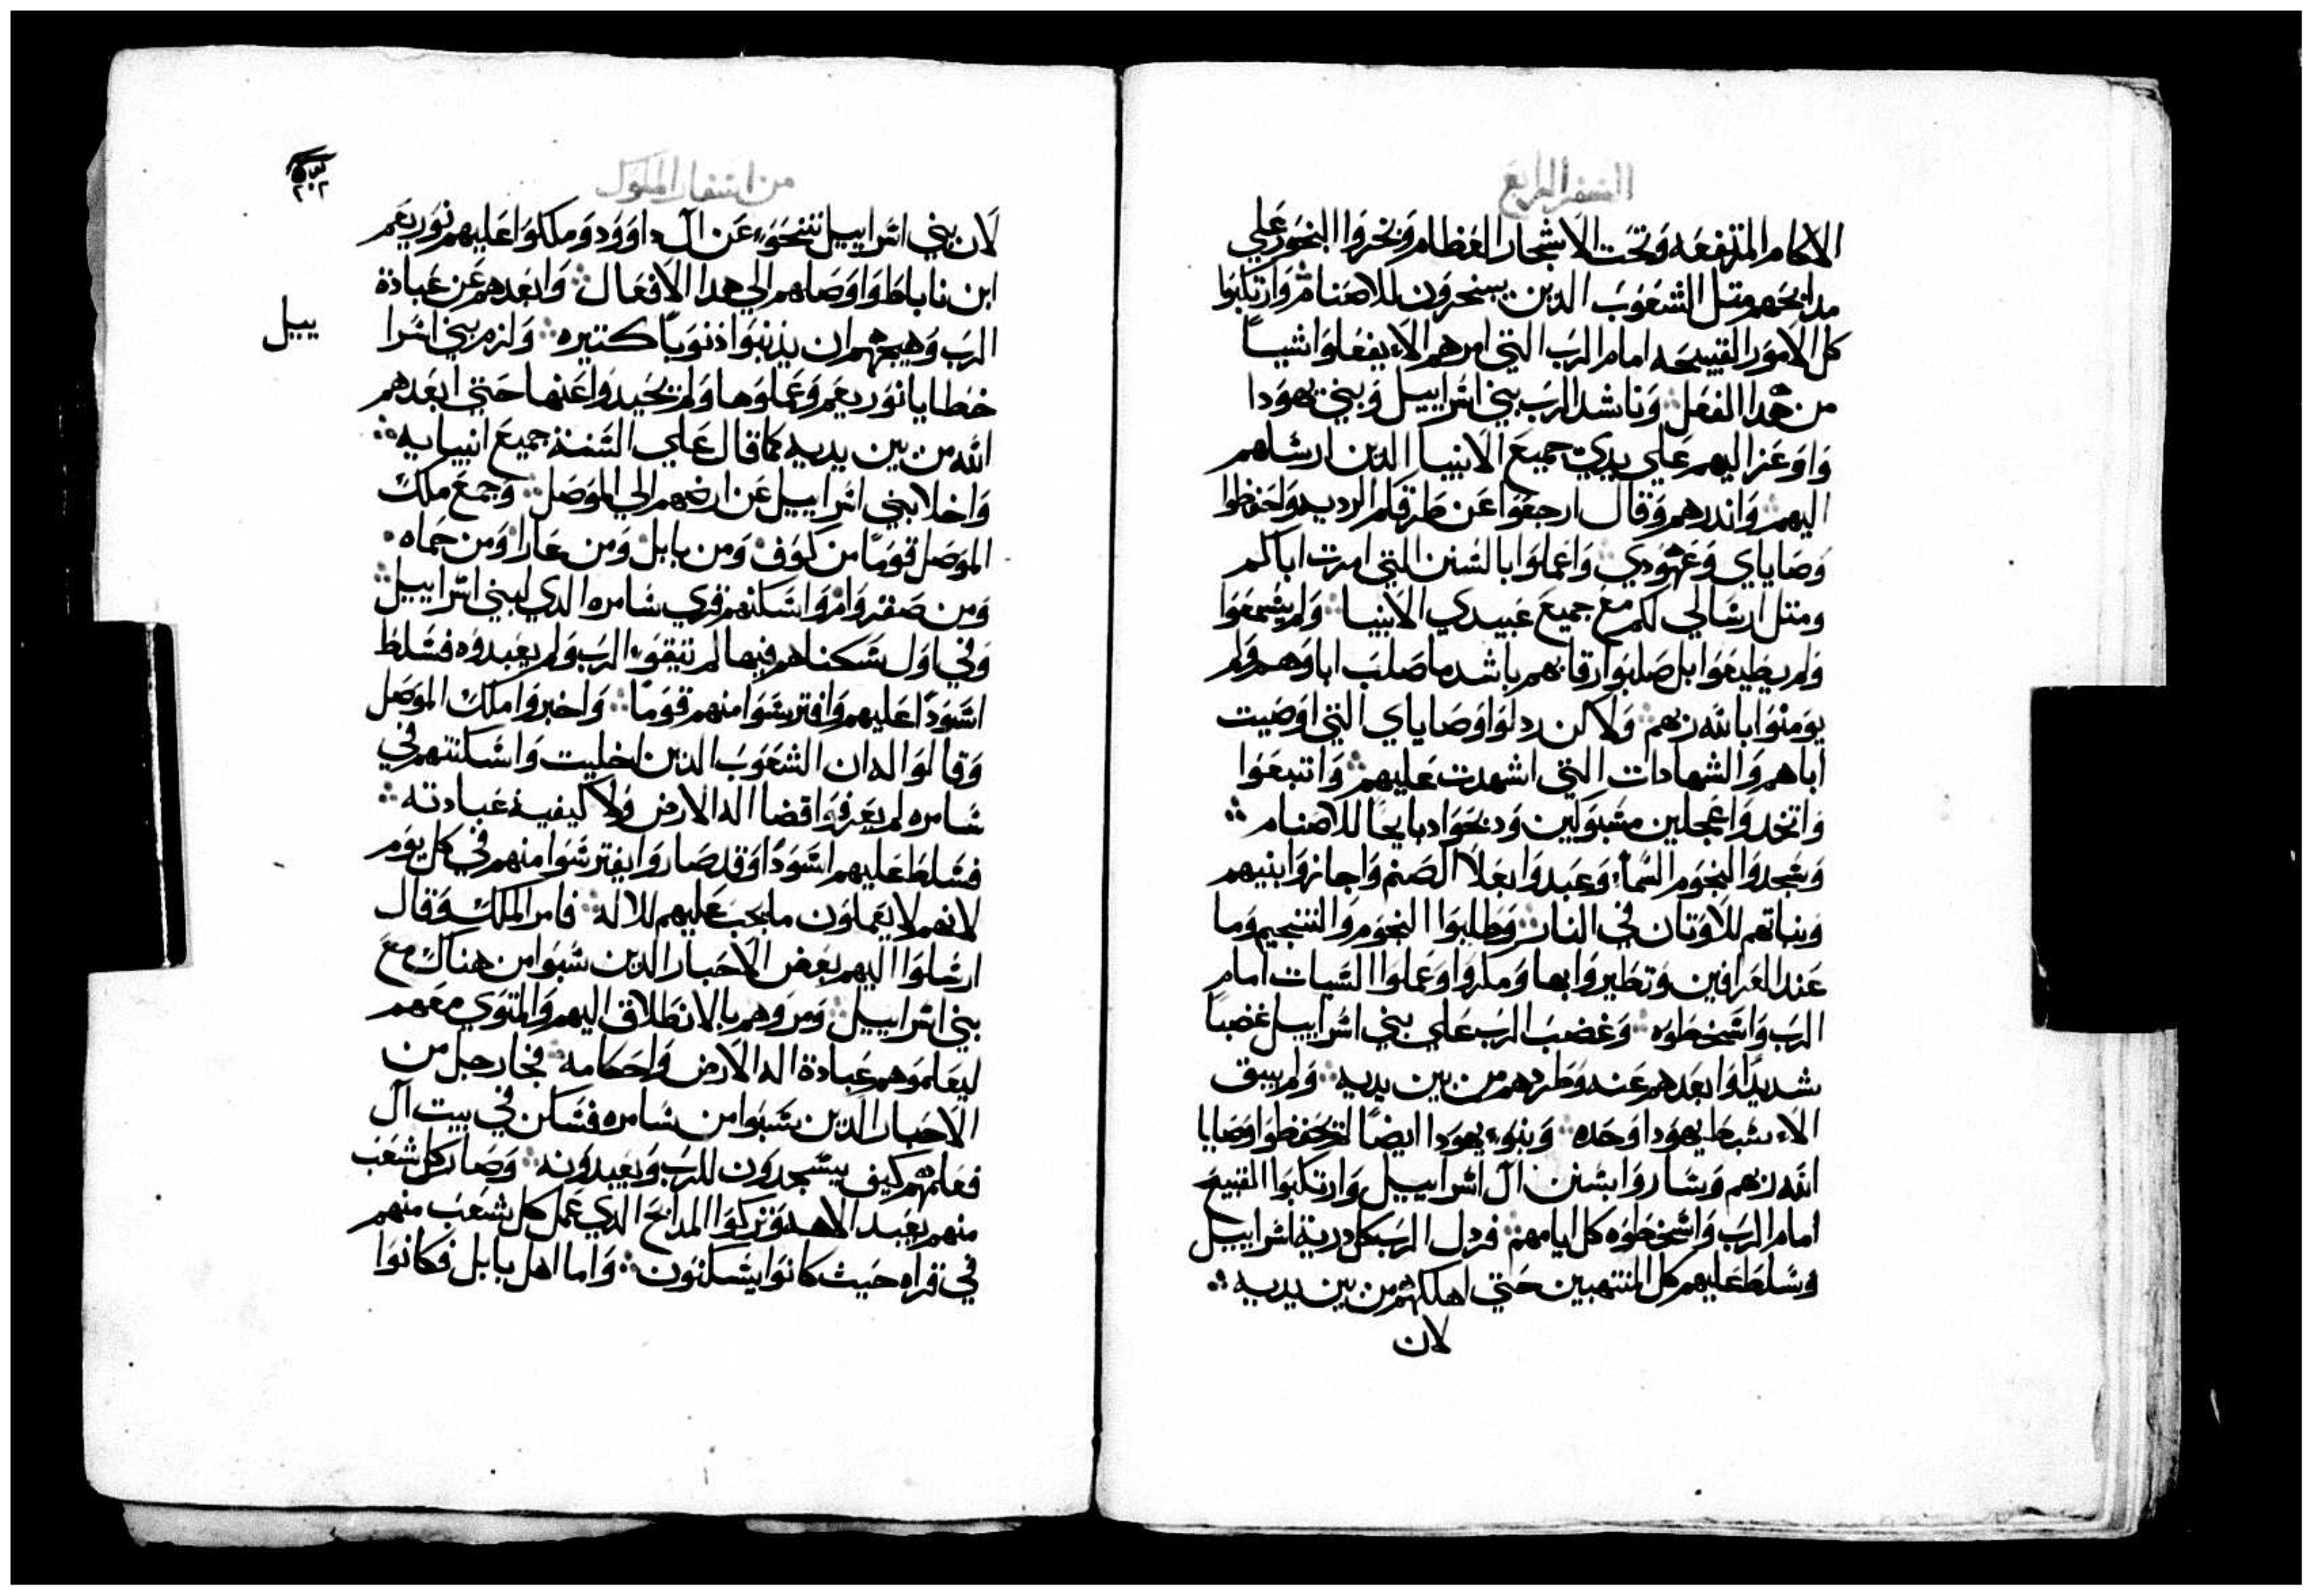 السفر الرابع
الاكام المرتفعه وتحت الاشجار العظام وبخروا البخور علي
مدابحهم متل الشعوب الدين يسنحرون للاصنام وارتكبوا
كل الامور القبيحه امام الرب التي امرهم الا يفعلوا شيًا
من هدا الفعل وناشد الرب بني اسراييل وبني يهودا
واوعز اليهم علي يدي جميع الانبيا الدين ارسلهم
اليهم واندرهم وقال ارجعوا عن طرقكم الرديه واحفظوا
وصاياي وعهودي واعملوا بالسنن التي امرت اباكم
ومتل ارسالي لكم مع جميع عبيدي الانبيا ولم يسمعوا
ولم يطيعوا بل صلبوا رقابهم باشد ما صلب اباوهم ولم
يومنوا بالله ربهم ولاكن ردلوا وصاياي التي اوصيت
اباهم والشهادات التي اشهدت عليهم واتبعوا
واتخدوا عجلين مسبوكين ودبحوا دبايحًا للاصنام
وسجدوا لنجوم السماء وعبدوا بعلا الصنم واجازوا بنيهم
وبناتهم للاوتان في النار وطلبوا النجوم والتنجيم وما
عند العرافين وتطيروا بها ومكروا وعملوا السيات امام
الرب واسخطوه وغضب الرب علي بني اسراييل غضبًا
شديدًا وابعدهم عنه وطردهم من بين يديه ولم يبق
الاء سبط يهودا وحده وبنوء يهودا ايضًا لم يحفظوا وصايا
الله ربهم وساروا بسنن ال اسراييل وارتكبوا القبيح
امام الرب واسخطوه كل ايامهم فردل الرب كل درية اسراييل
وسلط عليهم كل المنتهبين حتي اهلكهم من بين يديه
لان
من اسفار الملوك
٢٠٢
لان بني اسراييل تنحوء عن ال داوود وملكوا عليهم نوربعم
ابن ناباط واوصاهم الي هدا الافعال وابعدهم عن عبادة
الرب وهيجهم ان يدنبوا دنوبًا كتيره ولزم بني اسرا
ييل
خطايا نوربعم وعملوها ولم يحيدوا عنها حتي ابعدهم
الله من بين يديه كما قال علي السنة جميع انبيايه
واخلا بني اسراييل عن ارضهم الي الموصل وجمع ملك
الموصل قومًا من كوف ومن بابل ومن عارا ومن حماه
ومن صفروام واسكنهم قري سامره الدي لبني اسراييل
وفي اول سكناهم فيها لم تيقوء الرب ولم يعبدوه فسلط
اسودًا عليهم وافترسوا منهم قومًا واخبروا ملك الموصل
وقالوا له ان الشعوب الدين اخليت واسكنتهم في
سامره لم يعرفوا قضا اله الارض ولا كيفية عبادته
فسلط عليهم اسودًا وقد صاروا يفترسوا منهم في كل يوم
لانهم لا يعملون ما يجب عليهم للاله فامر الملك وقال
ارسلوا اليهم بعض الاحبار الدين سبوا من هناك مع
بني اسراييل ومروهم بالانطلاق اليهم والمتوي معهم
ليعلموهم عبادة اله الارض واحكامه فجا رجل من
الاحبار الدين سبوا من سامره فسكن في بيت ال
فعلمهم كيف يسجدون للرب ويعبدونه وصار كل شعب
منهم يعبد الاهه وتركوا المدابح الدي عمل كل شعب منهم
في قراه حيث كانوا يسكنون واما اهل بابل فكانوا